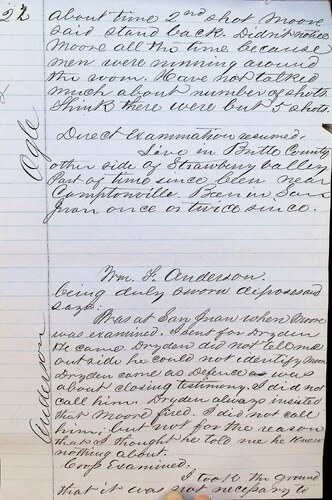 22
about time 2nd shot Moore
said stand back. Didn't notice
Moore all the time because
men were running around
the room. Have not talked
much about number of shots
Think there were but 5 shots
Ogle
Direct Examination resumed.
Live in Butte County
other side of Strawberry Valley
Part of time since been near
Camptonville. Been in San
Juan once or twice since.
Wm. F. Anderson.
being duly sworn deposes and
says:
Anderson
Was at San Juan when Moore
was examined. I sent for Dryden
He came. Dryden did not tell me
outside he could not identify men
Dryden came as Defence was
about closing testimony. I did not
call him. Dryden always insisted
that Moore fired. I did not call
him; but not for the reason
that I thought he told me he knew
nothing about.
Cross Examined.
I took the ground
that it was not necessary to